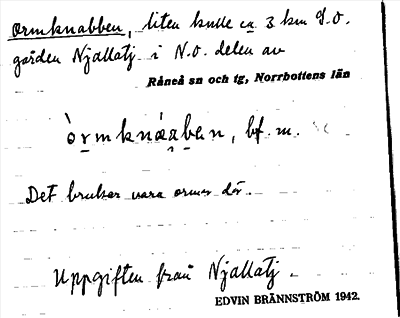 Ormknabben, liten kulle ca 3 km S.O.
gården Njallatj i N.O. delen av
Råneå sn och tg, Norrbottens län
òrmknáaben, bf. m.
Det brukar vara ormar där.
Uppgiften från Njallatj.
EDVIN BRÄNNSTRÖM 1942.